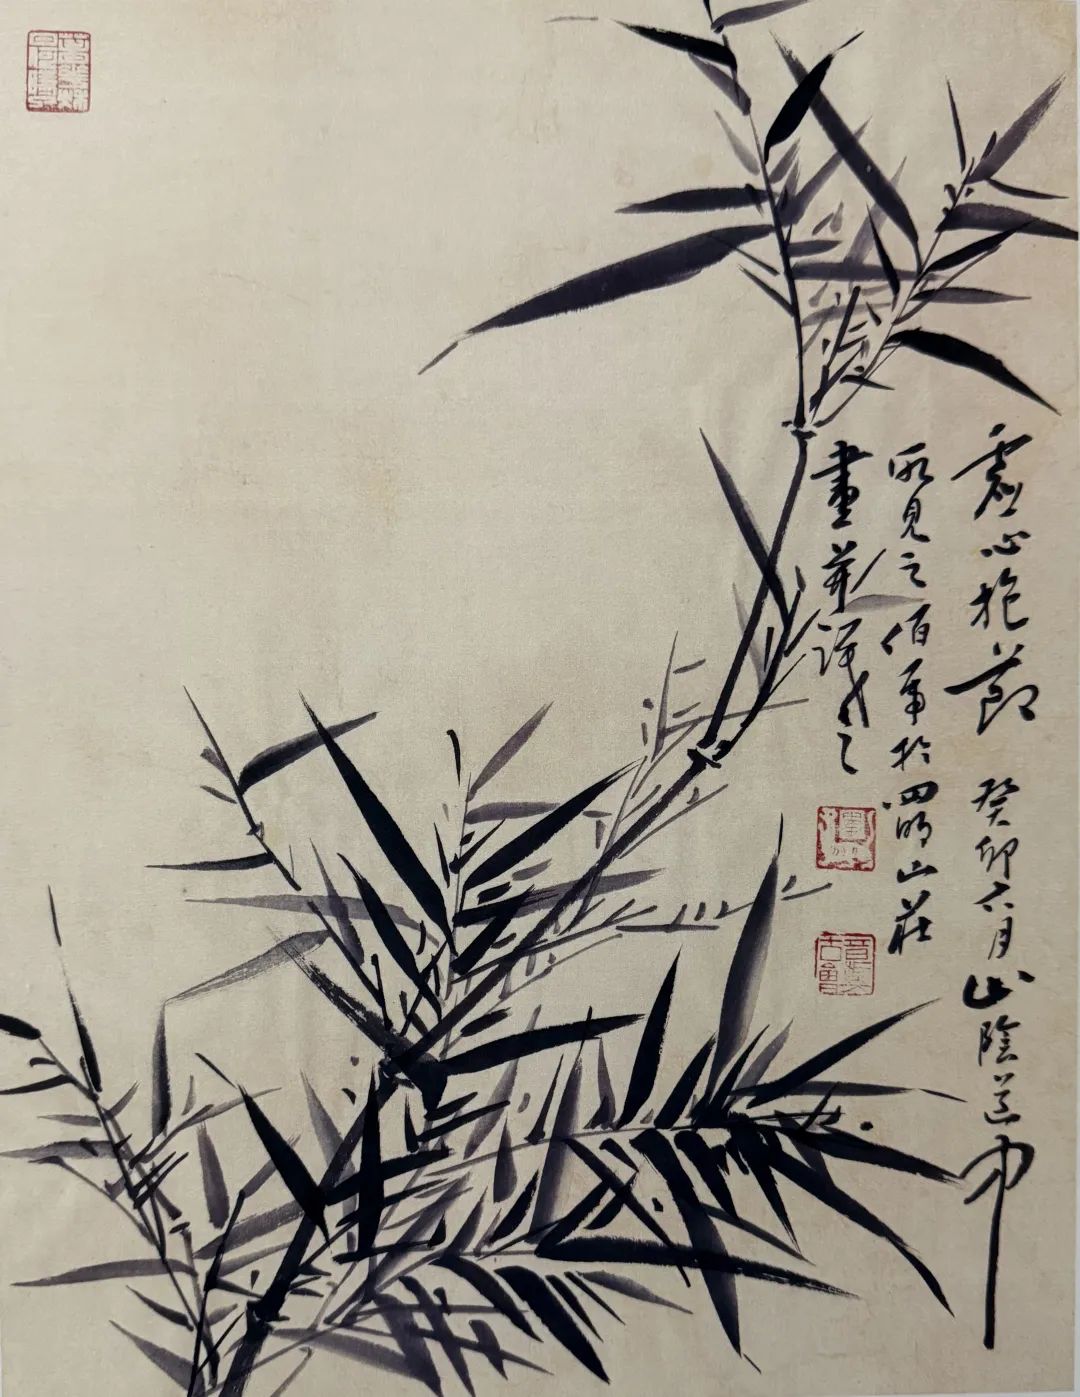 虛心抱節 癸卯六月山陰道中
所見之佰年於四明山莊
畫並識之